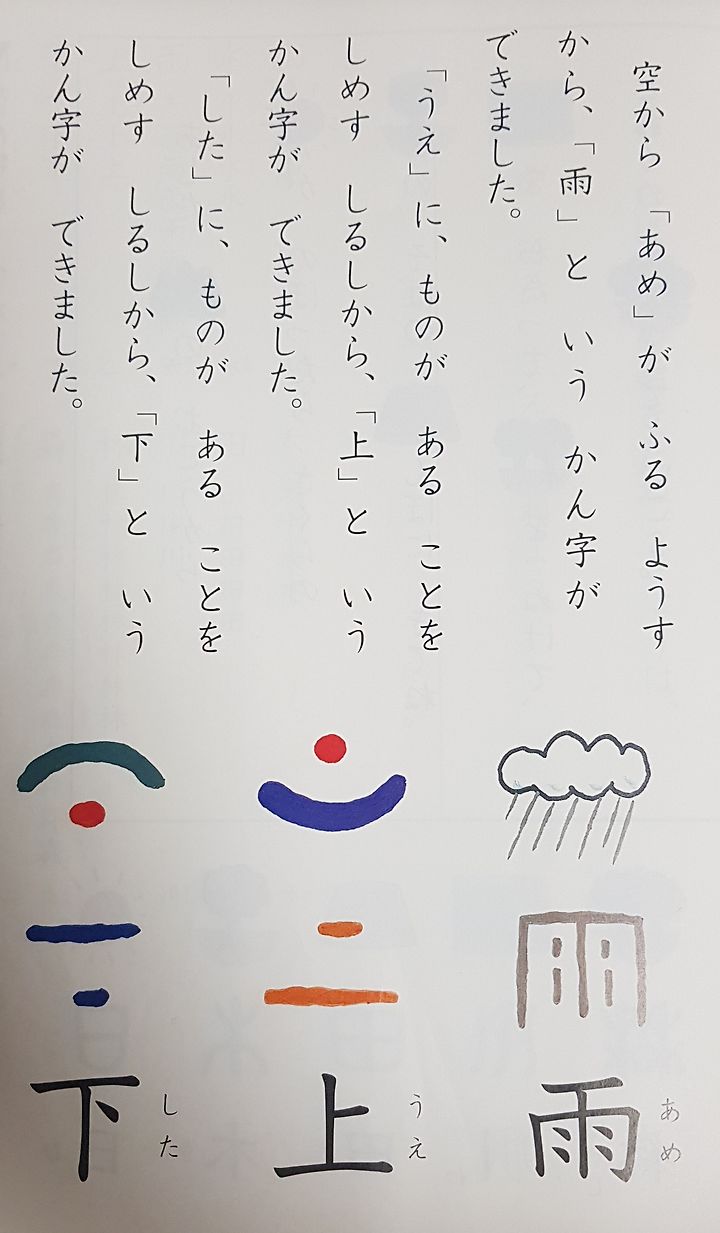 空から「あめ」が　ふる　ようす
から、「雨」と　いう　かん字が
できました。
「うえ」に、ものが　ある　ことを
しめす　しるしから、「上」と　いう
かん字が　できました。
「した」に、ものが　ある　ことを
しめす　しるしから、「下」と　いう
かん字が　できました。
雨
あめ
上
うえ
下
した